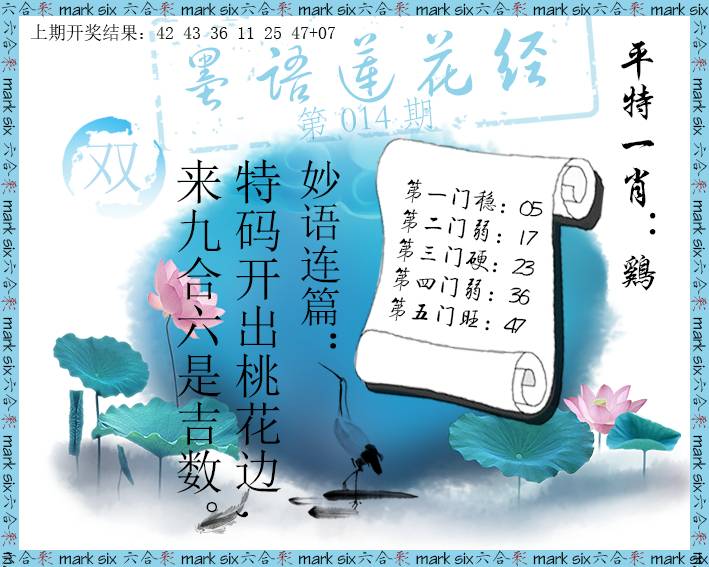 六合彩 mark six 六合彩 mark six 六合彩 mark six 六合彩 mark six 六合彩 mark six 六合彩
上期开奖结果：42 43 36 11 25 47+07
墨语莲花经
第 014 期
双
平特一肖：鷄
第一门稳：05
第二门弱：17
第三门硬：23
第四门弱：36
第五门旺：47
妙语连篇：
特码开出桃花边、
来九合六是吉数。
六合彩 mark six 六合彩 mark six 六合彩 mark six 六合彩 mark six 六合彩 mark six 六合彩